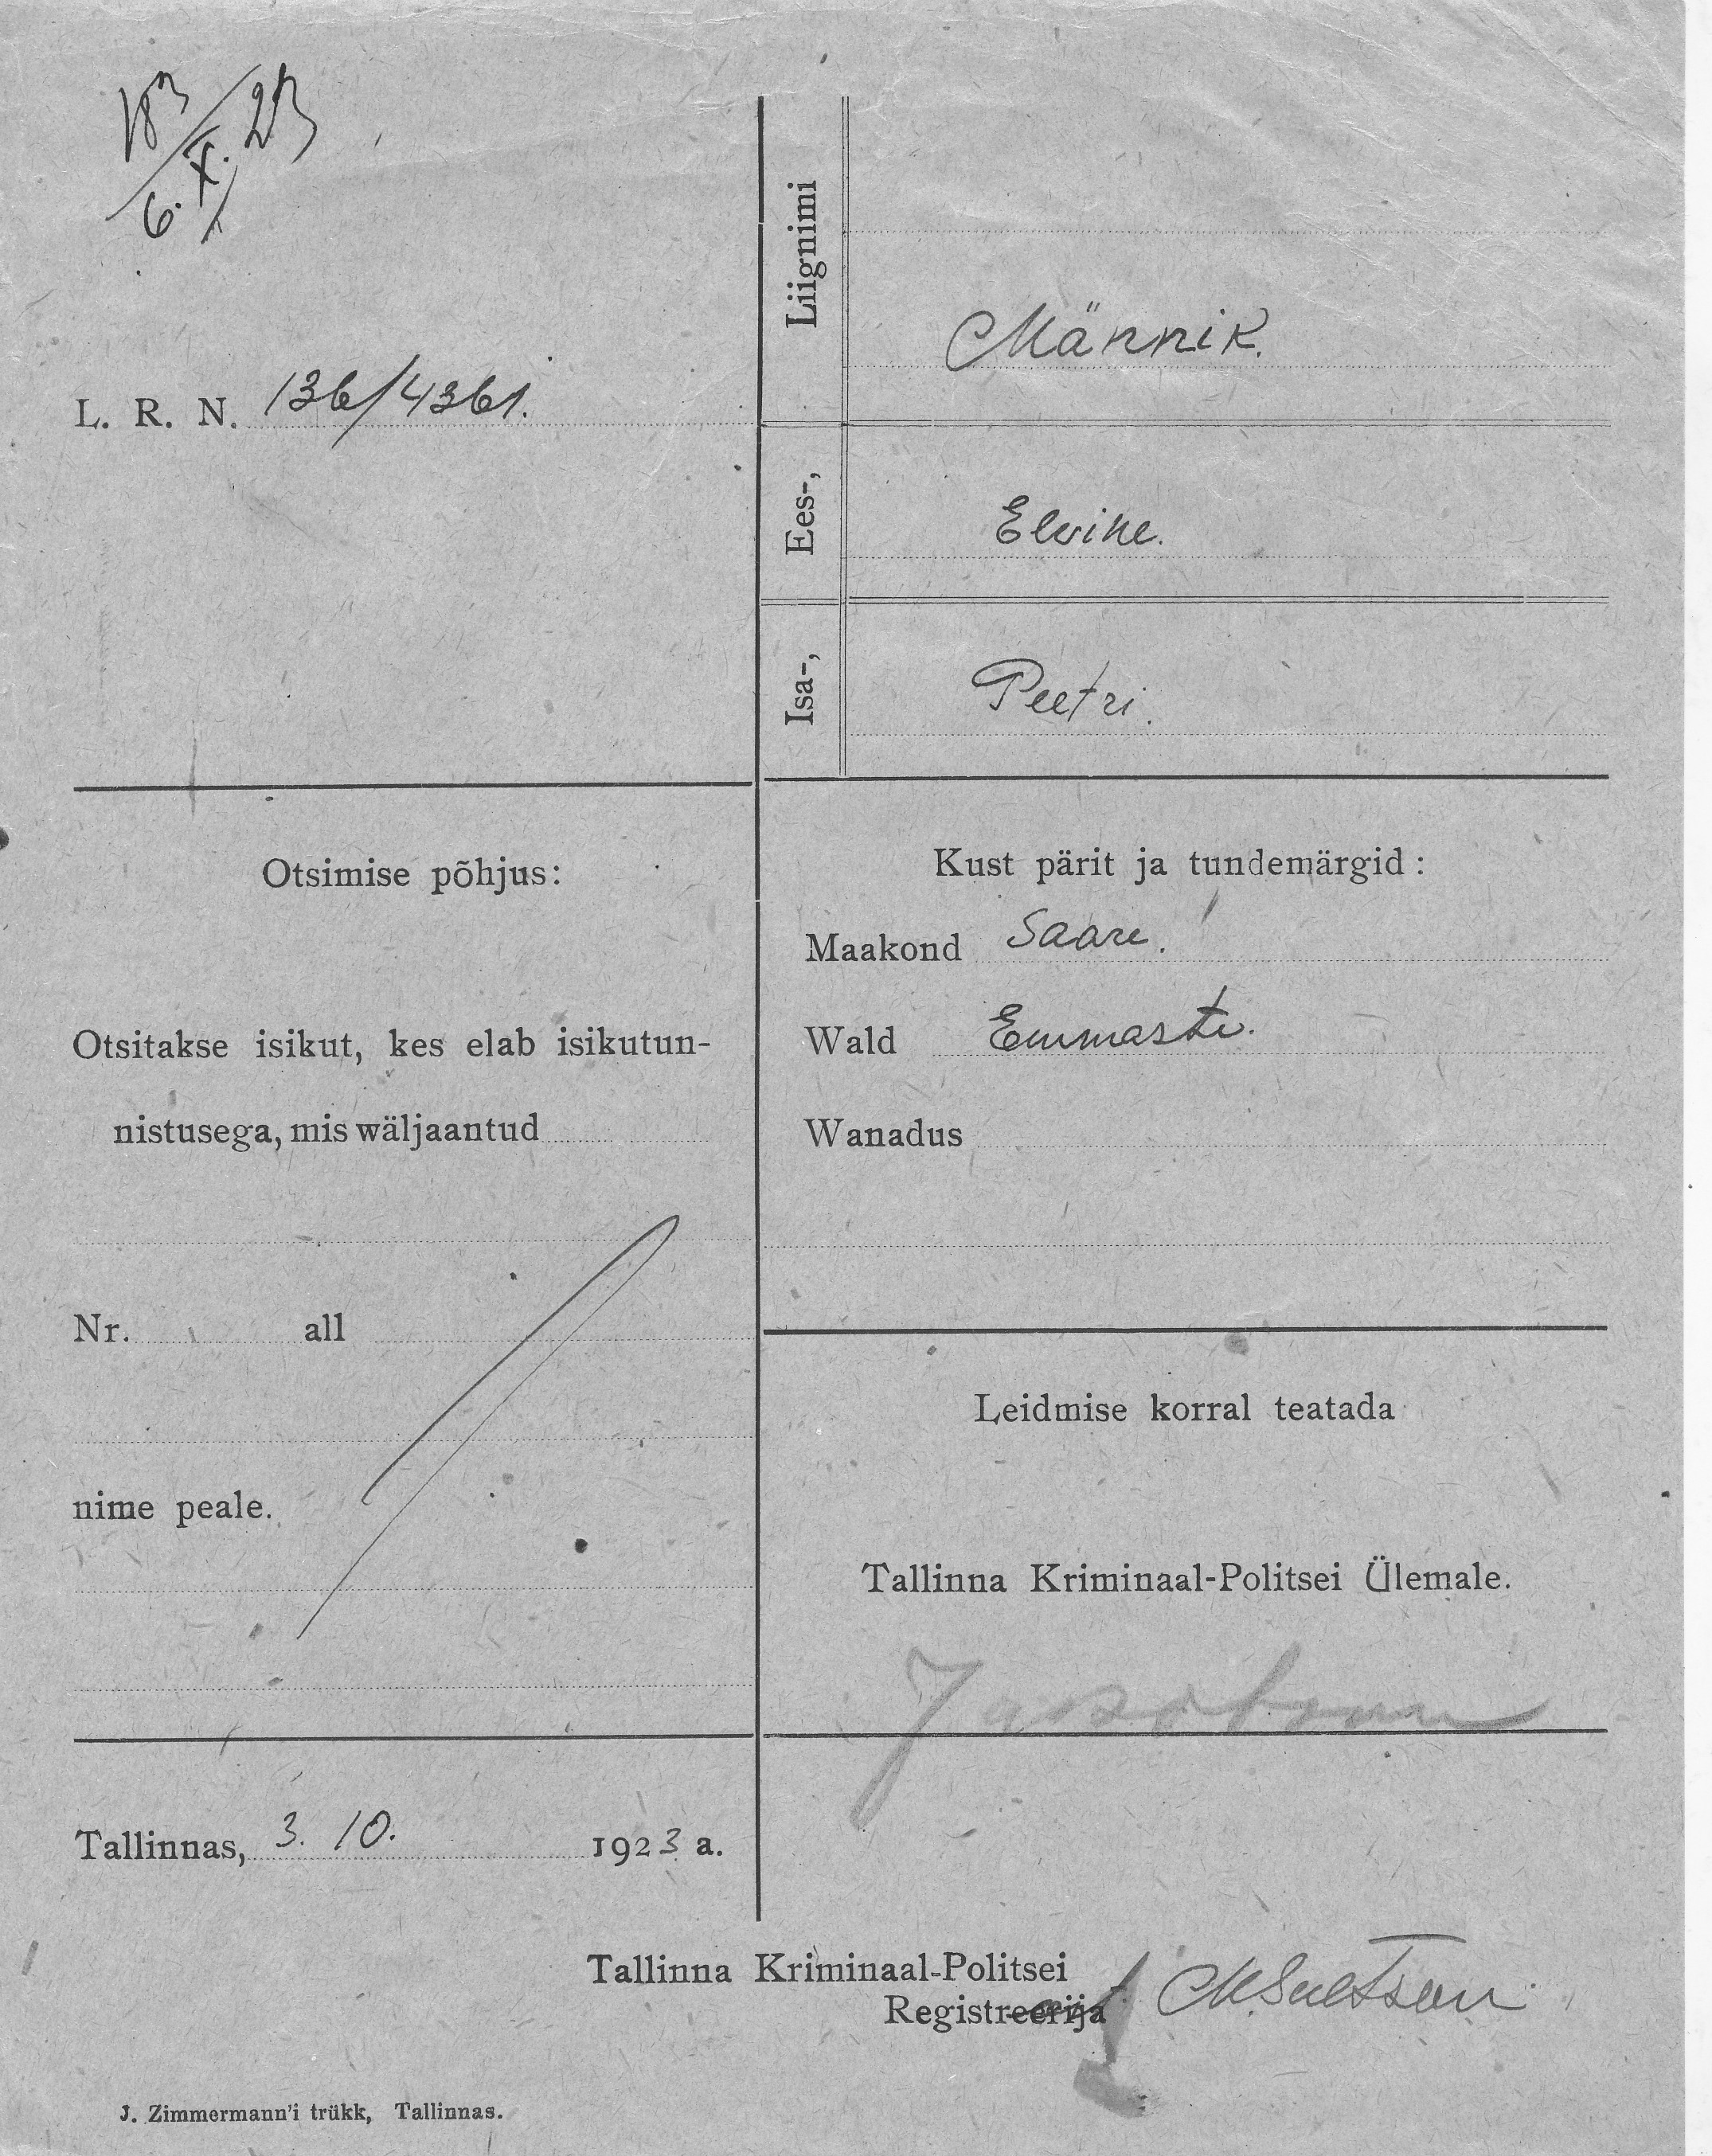 183
6. X. 23
L. R. N. 136/4361.
Liignimi
Männik.
Ees-,
Elvine.
Isa-,
Peetri.
Otsimise põhjus:
Otsitakse isikut, kes elab isikutun-
nistusega, mis wäljaantud
Nr. all
nime peale.
Kust pärit ja tundemärgid:
Maakond Saare.
Wald Emmaste.
Wanadus
Leidmise korral teatada
Tallinna Kriminaal-Politsei Ülemale.
Jakobson
Tallinnas, 3. 10. 1923 a.
Tallinna Kriminaal-Politsei
Registreerija
J. Zimmermann'i trükk, Tallinnas.